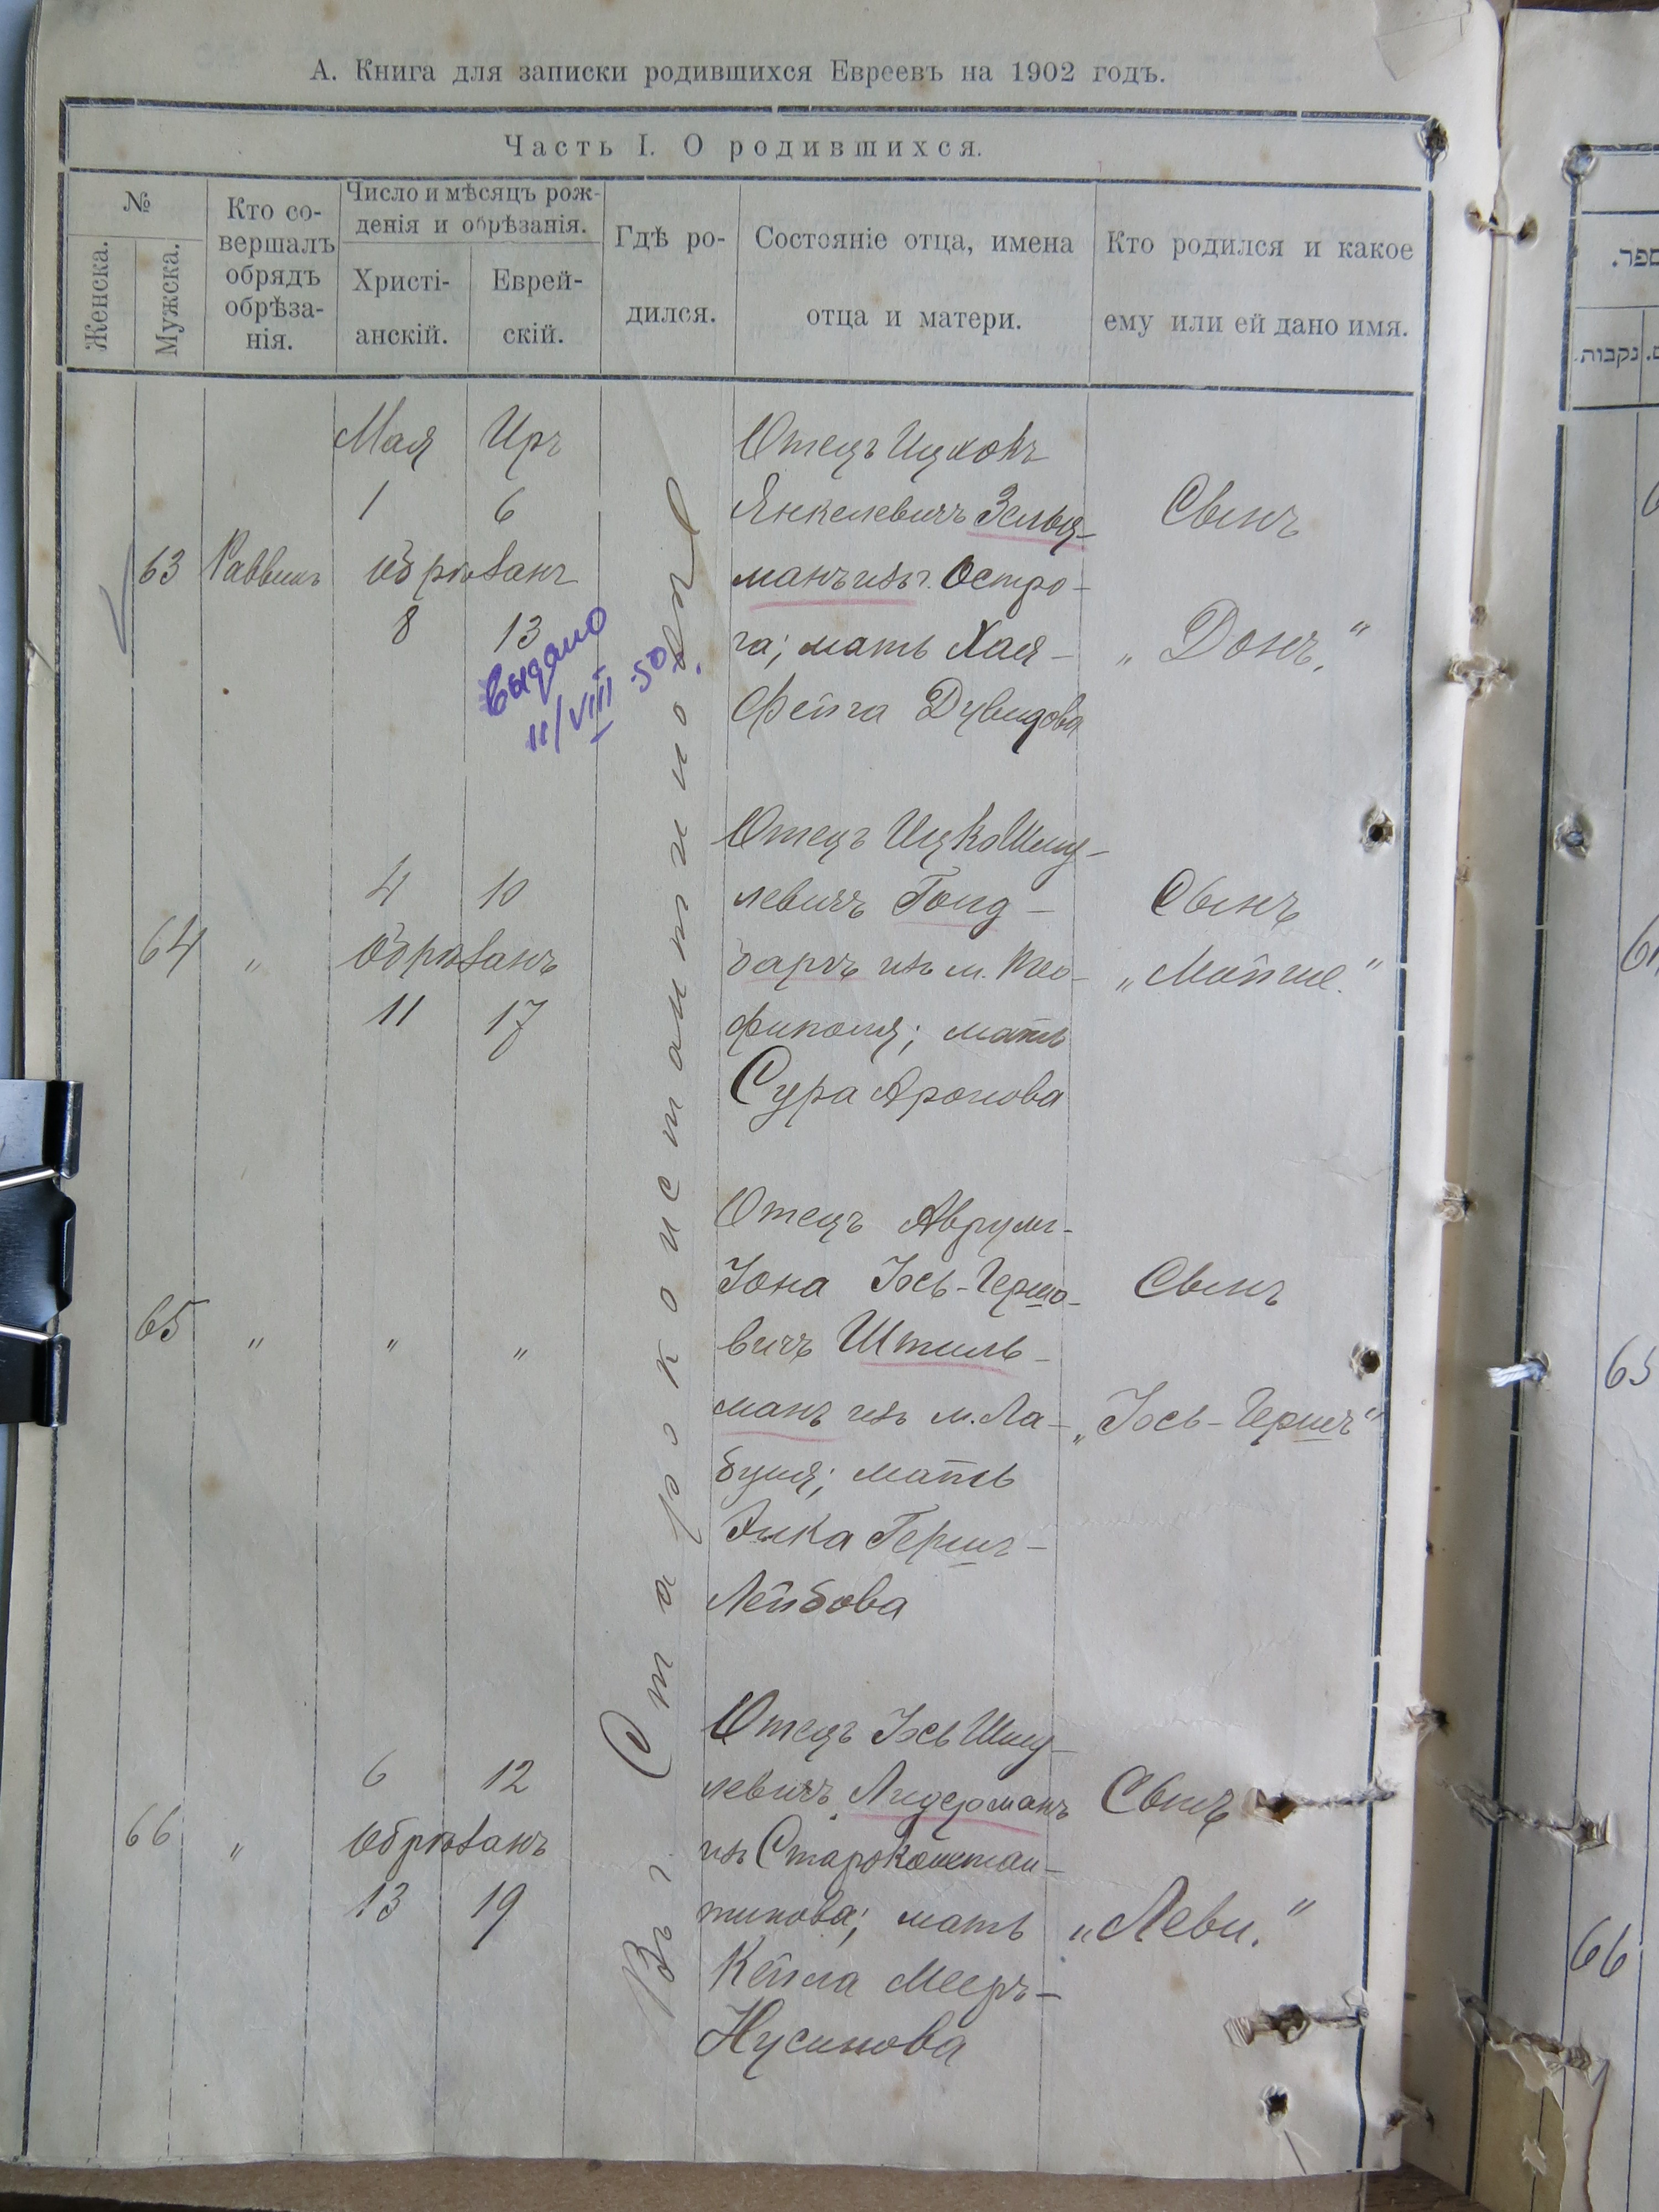 А. Книга для записки родившихся Евреевъ на 1902 годъ.
Часть I. О родившихся.
№
Женска.
Мужска.
Кто со-
вершалъ
обрядъ
обрѣза-
нія.
Число и мѣсяцъ рож-
денія и обрѣзанія.
Христі-
анскій.
Еврей-
скій.
Гдѣ ро-
дился.
Состояніе отца, имена
отца и матери.
Кто родился и какое
ему или ей дано имя.
Въ г. Староконстантиновѣ
Мая Иръ
1 6
63 Раввинъ обрѣзанъ
8 13
Выдано
11/VIII-50г.
Отецъ Ицхокъ
Янкелевичъ Зельц-
манъ изъ г. Остро-
га; мать Хая-
Фейга Дувидова
Сынъ
„Донъ.“
4 10
64 „ обрѣзанъ
11 17
Отецъ Ицко Шму-
левичъ Гоид-
барчъ изъ м. Тео-
фиполя; мать
Сура Аронова
Сынъ
„Мойше.“
65 „ „ „
Отецъ Аврумъ-
Іона Іось-Гершо-
вичъ Штиль-
манъ изъ м. Ла-
буня; мать
Элка Гершъ-
Лейбова
Сынъ
„Іось-Гершъ“
6 12
66 „ обрѣзанъ
13 19
Отецъ Іось Шму-
левичъ Лидерманъ
изъ Староконстан-
тинова; мать
Кейла Мееръ-
Нусинова
Сынъ
„Леви.“
ספר.
נקבות.
65
66